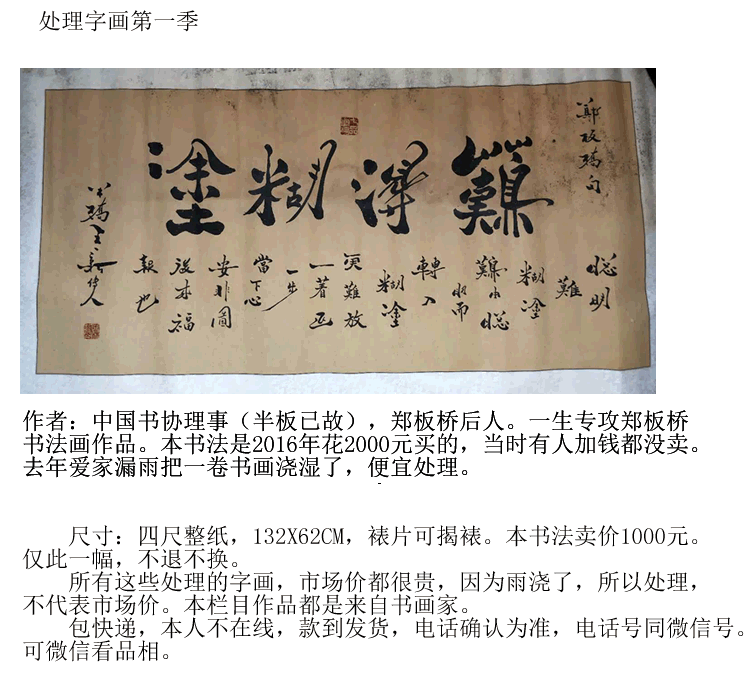 处理字画第一季
鄭板橋句
難得糊塗
聰明
難
糊塗
難由聰
明而
轉入
糊塗
更難放
一著退
一步
當下心
安非圖
後來福
報也
作者：中国书协理事（半板已故），郑板桥后人。一生专攻郑板桥
书法画作品。本书法是2016年花2000元买的，当时有人加钱都没卖。
去年爱家漏雨把一卷书画浇湿了，便宜处理。
尺寸：四尺整纸，132X62CM，裱片可揭裱。本书法卖价1000元。
仅此一幅，不退不换。
所有这些处理的字画，市场价都很贵，因为雨浇了，所以处理，
不代表市场价。本栏目作品都是来自书画家。
包快递，本人不在线，款到发货，电话确认为准，电话号同微信号。
可微信看品相。